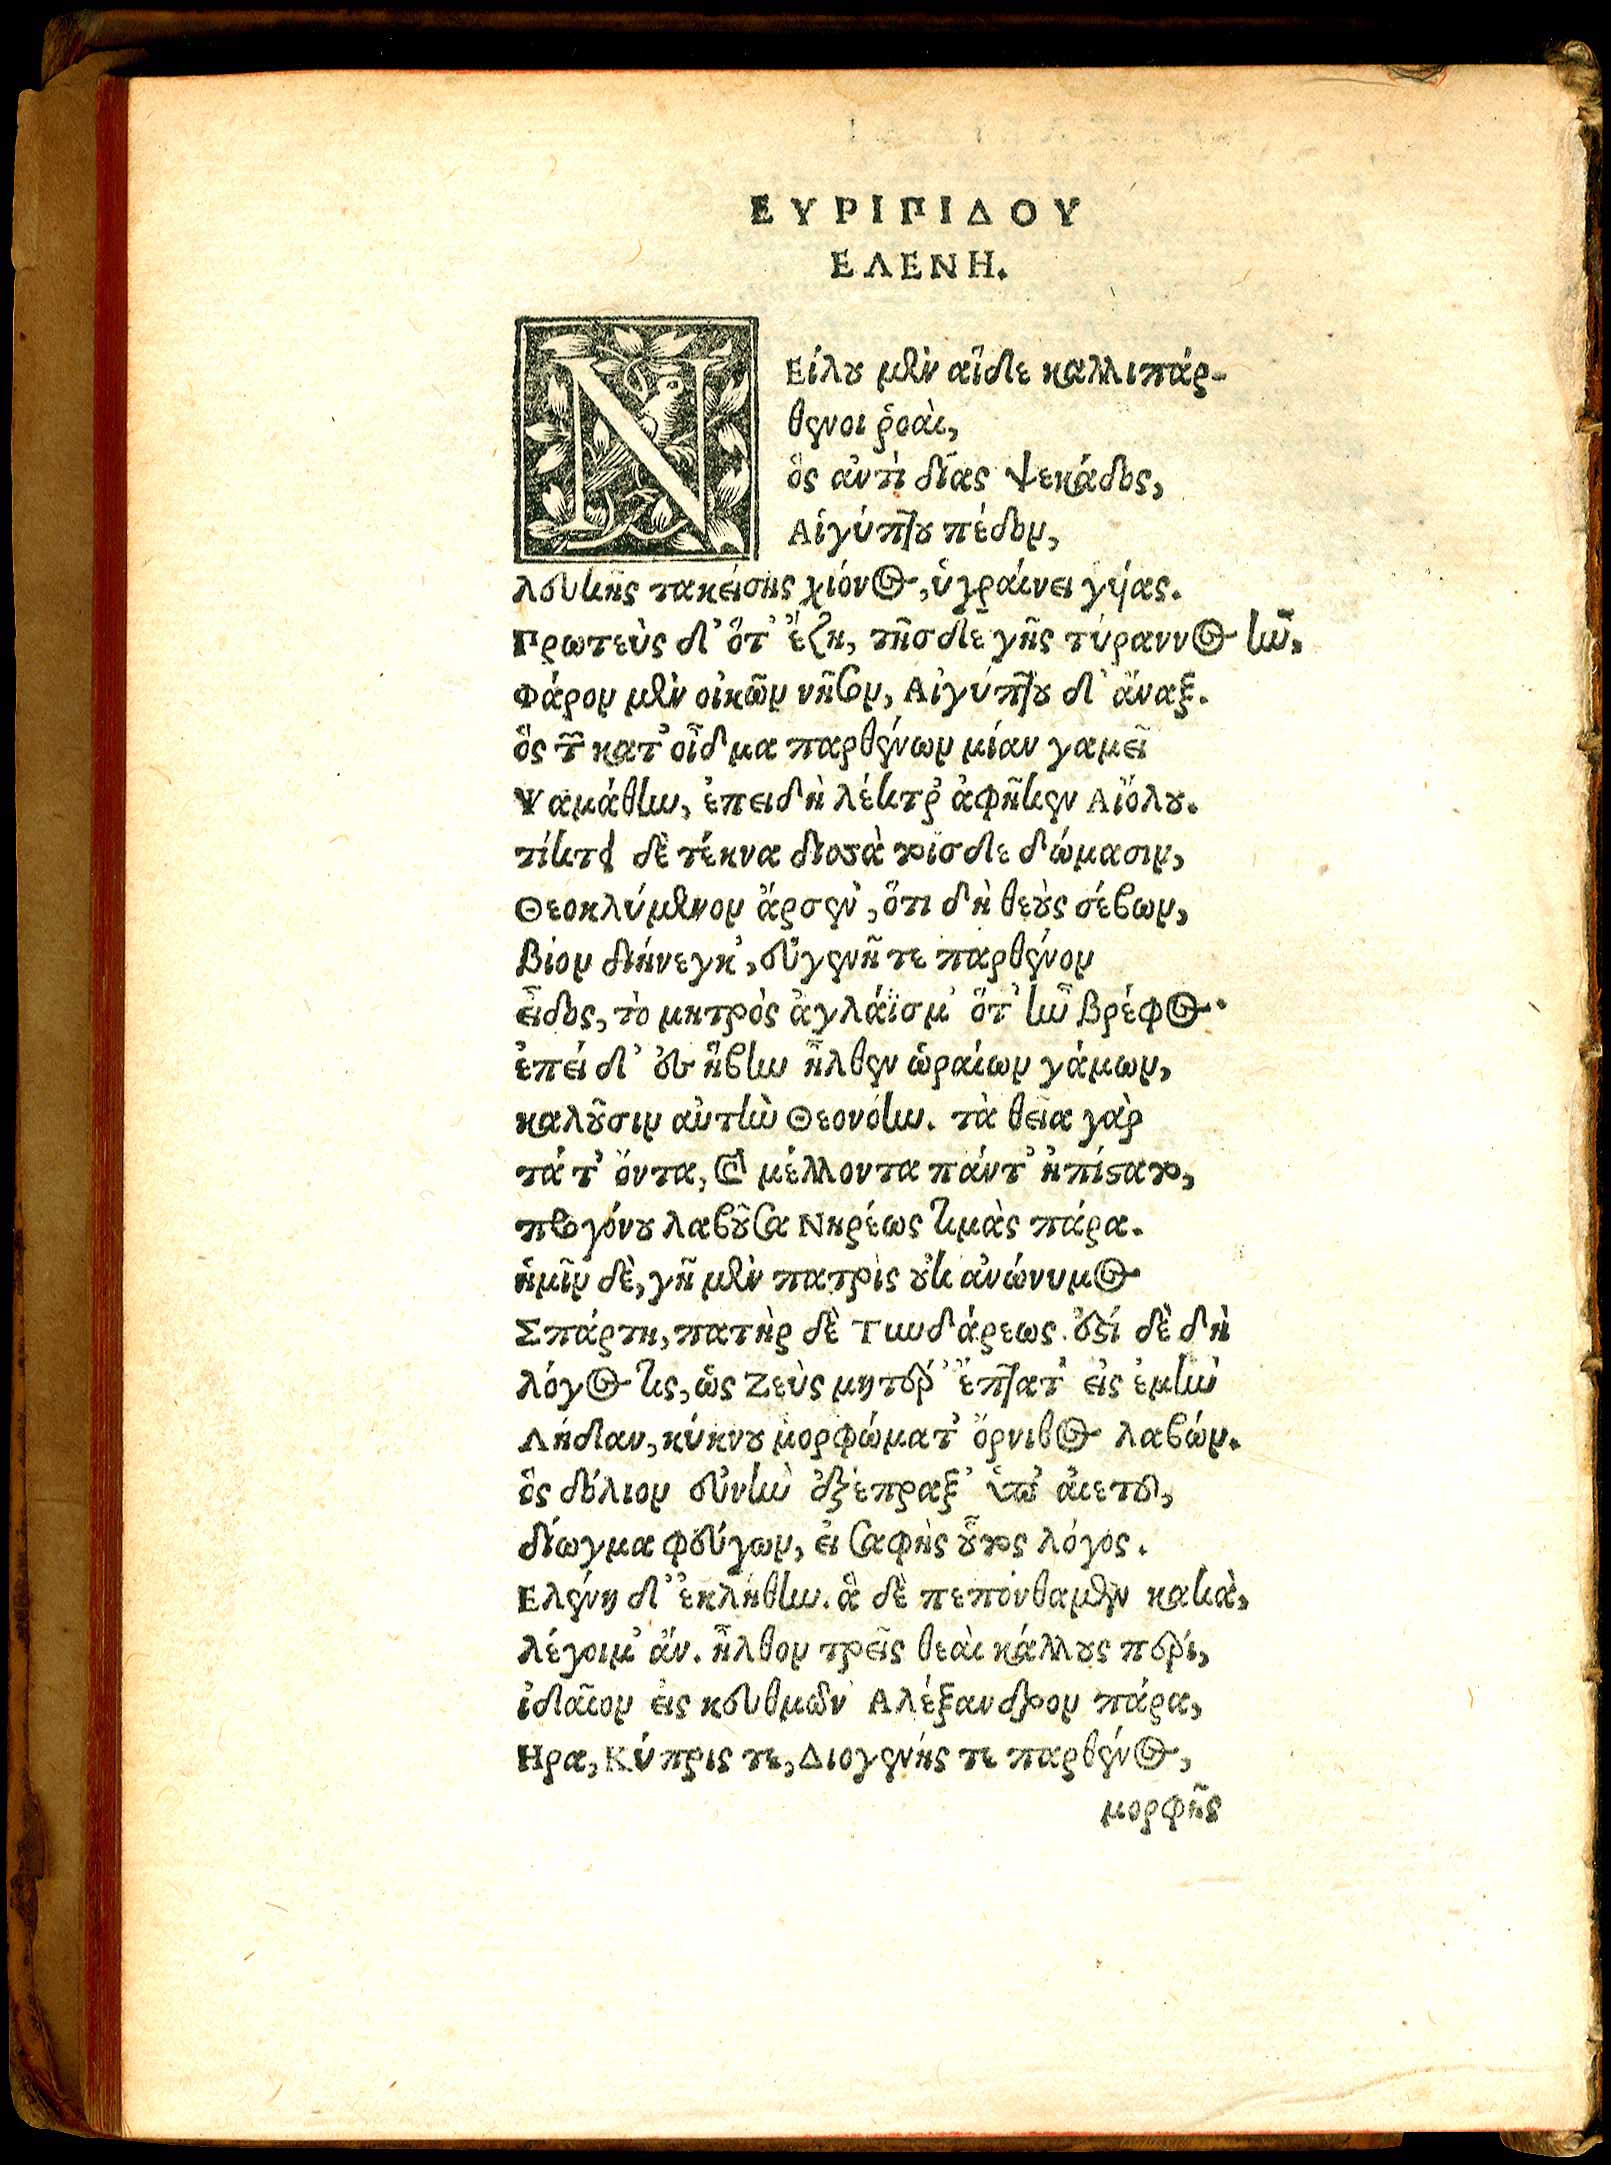 ΕΥΡΙΠΙΔΟΥ
ΕΛΕΝΗ.
ΝΕίλου μὲν αἵδε καλλιπάρ-
θενοι ῥοαὶ,
ὃς ἀντὶ δίας ψεκάδος,
Αἰγύπτου πέδον,
λευκῆς τακείσης χιόνος, ὑγραίνει γύας.
Πρωτεὺς δ' ὅτ' ἔζη, τῆσδε γῆς τύραννος ἦν,
Φάρον μὲν οἰκῶν νῆσον, Αἰγύπτου δ' ἄναξ.
ὃς τῶν κατ' οἶδμα παρθένων μίαν γαμεῖ
Ψαμάθην, ἐπειδὴ λέκτρ' ἀφῆκεν Αἰόλου.
τίκτει δὲ τέκνα δισσὰ τοῖσδε δώμασιν,
Θεοκλύμενον ἄρσεν', ὅτι δὴ θεοὺς σέβων,
βίον διήνεγκ', εὐγενῆ τε παρθένον
εἶδος, τὸ μητρὸς ἀγλάϊσμ' ὅτ' ἦν βρέφος.
ἐπεὶ δ' ἐς ἥβην ἦλθεν ὡραίων γάμων,
καλοῦσιν αὐτὴν Θεονόην. τὰ θεῖα γὰρ
τά τ' ὄντα, καὶ μέλλοντα πάντ' ἠπίστατο,
προγόνου λαβοῦσα Νηρέως τιμὰς πάρα.
ἡμῖν δὲ, γῆ μὲν πατρὶς οὐκ ἀνώνυμος
Σπάρτη, πατὴρ δὲ Τυνδάρεως. ἐστὶ δὲ δὴ
λόγος τις, ὡς Ζεὺς μητέρ' ἔπτατ' εἰς ἐμὴν
Λήδαν, κύκνου μορφώματ' ὄρνιθος λαβών.
ὃς δόλιον εὐνὴν ἐξέπραξ' ὑπ' ἀιετοῦ,
δίωγμα φεύγων, εἰ σαφὴς οὗτος λόγος.
Ελένη δ' ἐκλήθην. ἃ δὲ πεπόνθαμεν κακὰ,
λέγοιμ' ἄν. ἦλθον τρεῖς θεαὶ κάλλους πέρι,
ἰδαῖον εἰς κευθμῶν' Αλέξανδρον πάρα,
Ηρα, Κύπρις τε, Διογενής τε παρθένος,
μορφῆς